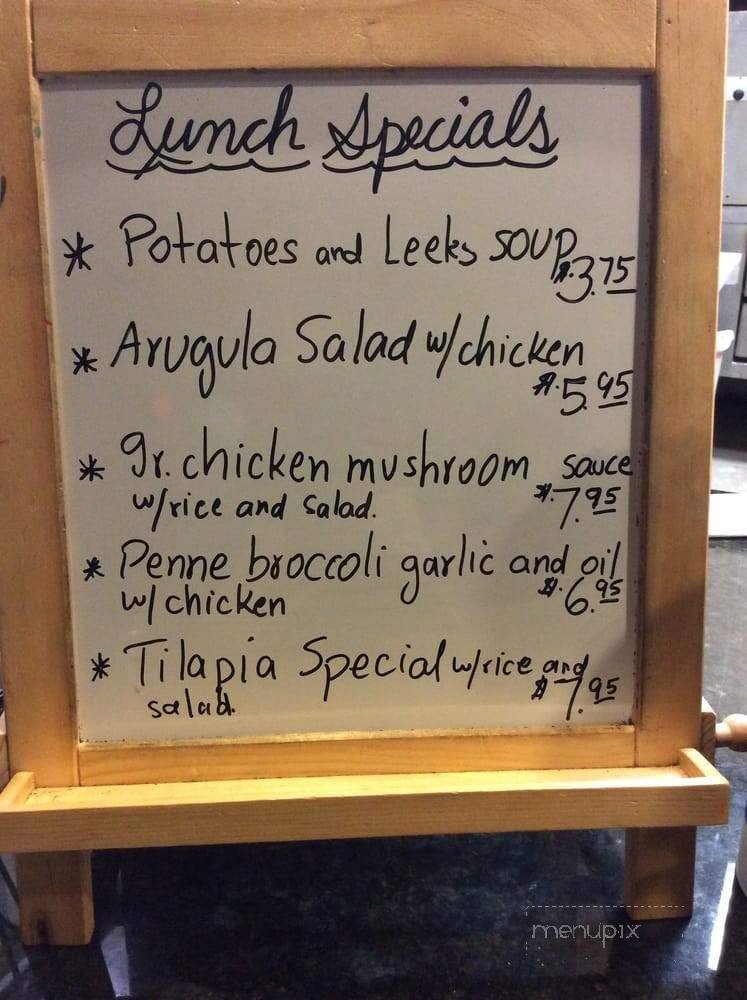 Lunch Specials
* Potatoes and Leeks soup
$.3.75
* Arugula Salad w/chicken
$.5.95
* gr. chicken mushroom sauce
w/rice and salad. $.7.95
* Penne broccoli garlic and oil
w/chicken $.6.95
* Tilapia Special w/rice and
salad. $7.95
menupix